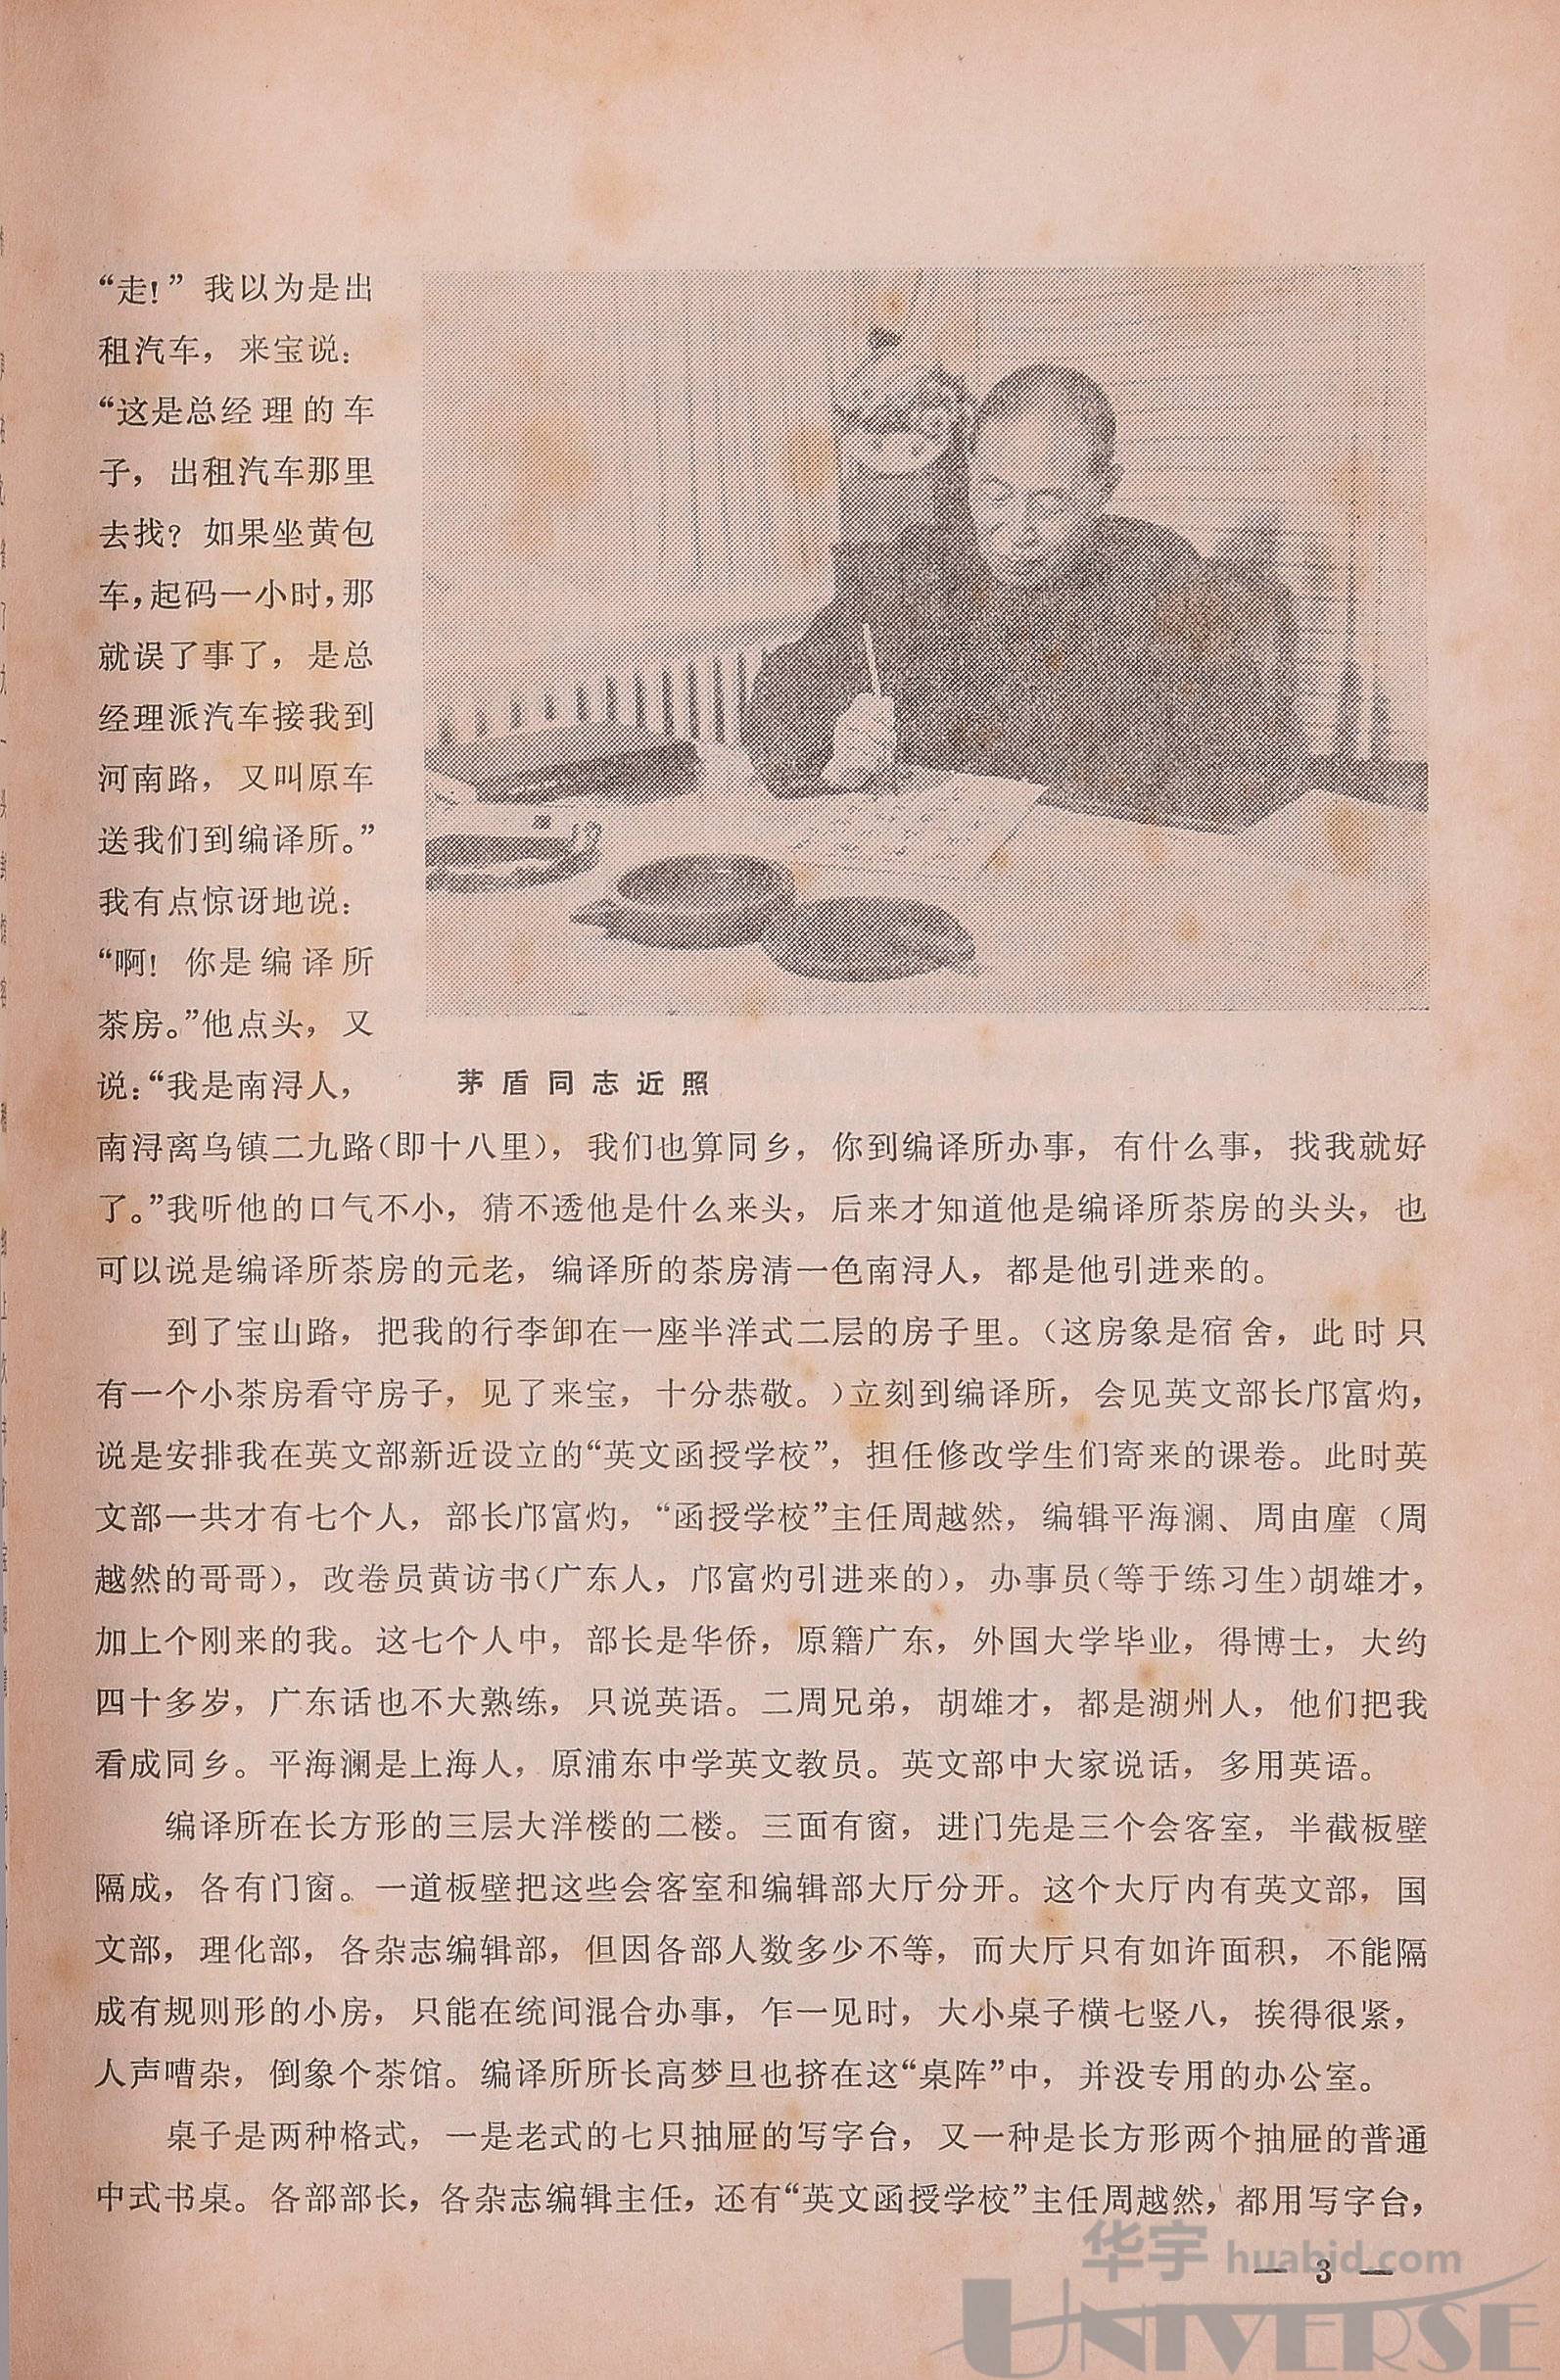 “走！”我以为是出
租汽车，来宝说：
“这是总经理的车
子，出租汽车那里
去找？如果坐黄包
车，起码一小时，那
就误了事了，是总
经理派汽车接我到
河南路，又叫原车
送我们到编译所。”
我有点惊讶地说：
“啊！你是编译所
茶房。”他点头，又
说：“我是南浔人，
茅盾同志近照
南浔离乌镇二九路（即十八里），我们也算同乡，你到编译所办事，有什么事，找我就好
了。”我听他的口气不小，猜不透他是什么来头，后来才知道他是编译所茶房的头头，也
可以说是编译所茶房的元老，编译所的茶房清一色南浔人，都是他引进来的。
到了宝山路，把我的行李卸在一座半洋式二层的房子里。（这房象是宿舍，此时只
有一个小茶房看守房子，见了来宝，十分恭敬。）立刻到编译所，会见英文部长邝富灼，
说是安排我在英文部新近设立的“英文函授学校”，担任修改学生们寄来的课卷。此时英
文部一共才有七个人，部长邝富灼，“函授学校”主任周越然，编辑平海澜、周由廑（周
越然的哥哥），改卷员黄访书（广东人，邝富灼引进来的），办事员（等于练习生）胡雄才，
加上个刚来的我。这七个人中，部长是华侨，原籍广东，外国大学毕业，得博士，大约
四十多岁，广东话也不大熟练，只说英语。二周兄弟，胡雄才，都是湖州人，他们把我
看成同乡。平海澜是上海人，原浦东中学英文教员。英文部中大家说话，多用英语。
编译所在长方形的三层大洋楼的二楼。三面有窗，进门先是三个会客室，半截板壁
隔成，各有门窗。一道板壁把这些会客室和编辑部大厅分开。这个大厅内有英文部，国
文部，理化部，各杂志编辑部，但因各部人数多少不等，而大厅只有如许面积，不能隔
成有规则形的小房，只能在统间混合办事，乍一见时，大小桌子横七竖八，挨得很紧，
人声嘈杂，倒象个茶馆。编译所所长高梦旦也挤在这“桌阵”中，并没专用的办公室。
桌子是两种格式，一是老式的七只抽屉的写字台，又一种是长方形两个抽屉的普通
中式书桌。各部部长，各杂志编辑主任，还有“英文函授学校”主任周越然，都用写字台，
华宇 huabid.com
— 3 —
UNIVERSE